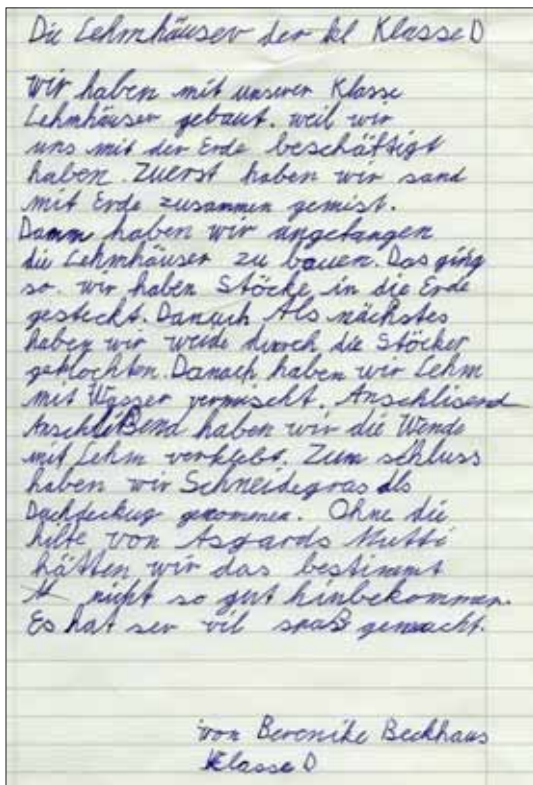 Die Lehmhäuser der kl Klasse D
Wir haben mit unserer Klasse
Lehmhäuser gebaut. weil wir
uns mit der Erde beschäftigt
haben. Zuerst haben wir sand
mit Erde zusammen gemist.
Dann haben wir angefangen
die Lehmhäuser zu bauen. Das ging
so. wir haben Stöcke in die Erde
gesteckt. Danach Als nächstes
haben wir weide durch die Stöcker
geflochten. Danach haben wir Lehm
mit Wasser vermischt. Anschlisend
Anschließend haben wir die Wende
mit Lehm verklebt. Zum schluss
haben wir Schneidegras als
Dachdeckug genommen. Ohne die
hilfe von Asgards Mutti
hätten wir das bestimmt
nicht so gut hinbekommen.
Es hat ser vil spaß gemacht.
von Berenike Beckhaus
Klasse D